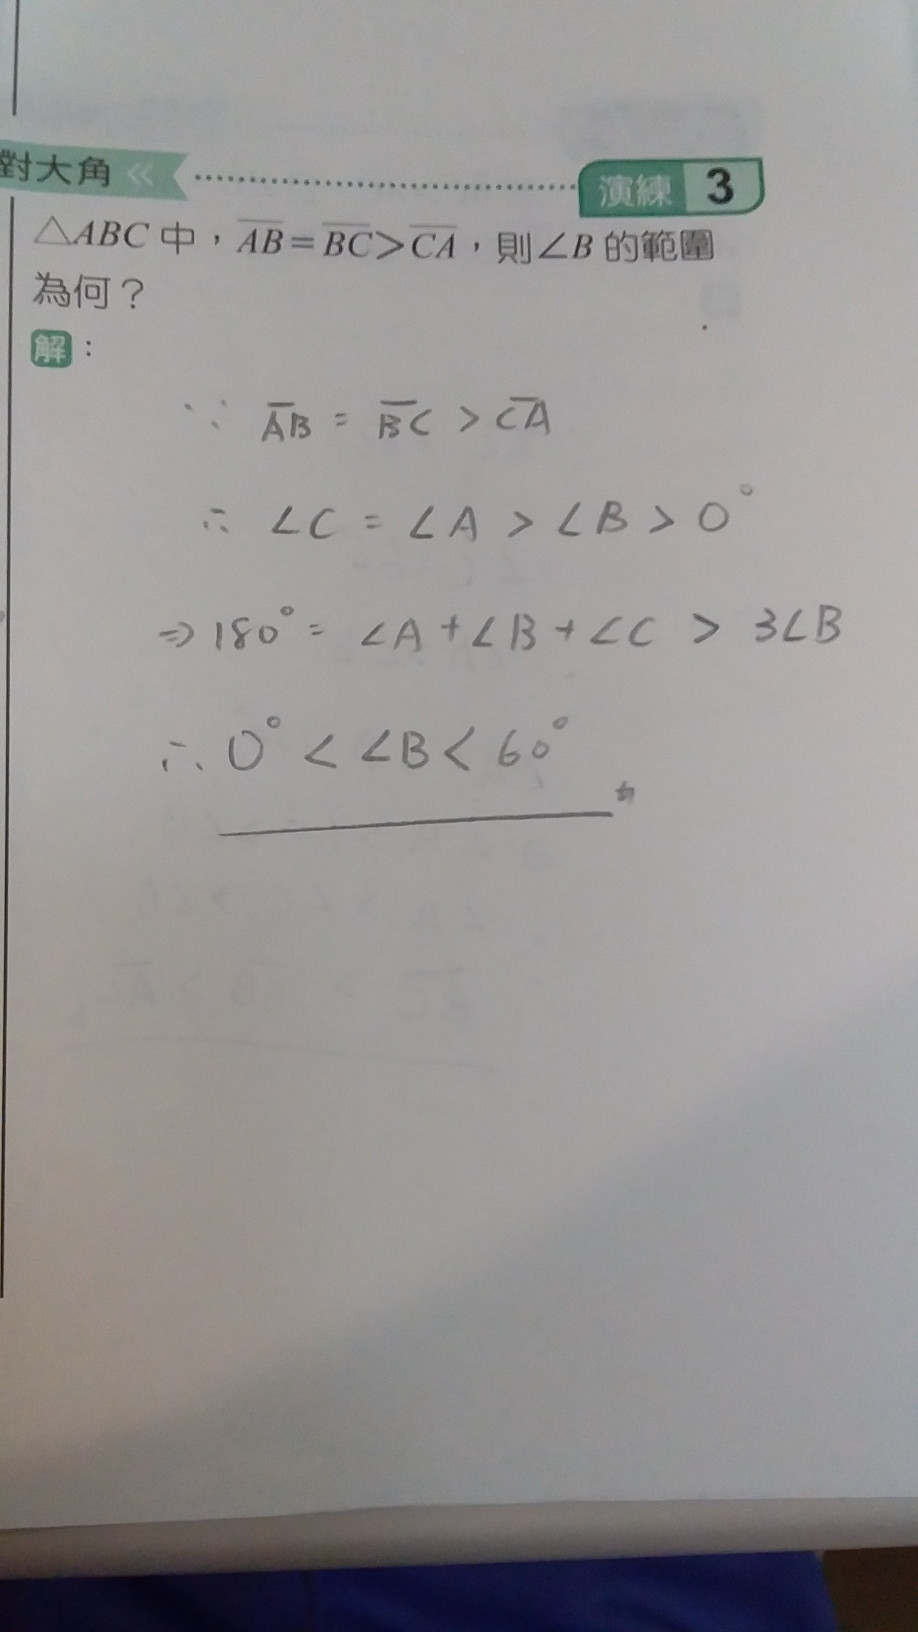 對大角
演練 3
△ABC 中，AB=BC>CA，則∠B 的範圍
為何？
解：
∵ AB = BC > CA
∴ ∠C = ∠A > ∠B > 0°
⇒ 180° = ∠A + ∠B + ∠C > 3∠B
∴ 0° < ∠B < 60°